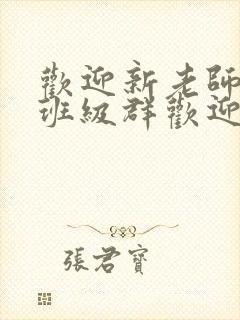 歡迎新老師
班級群歡迎
張君寶